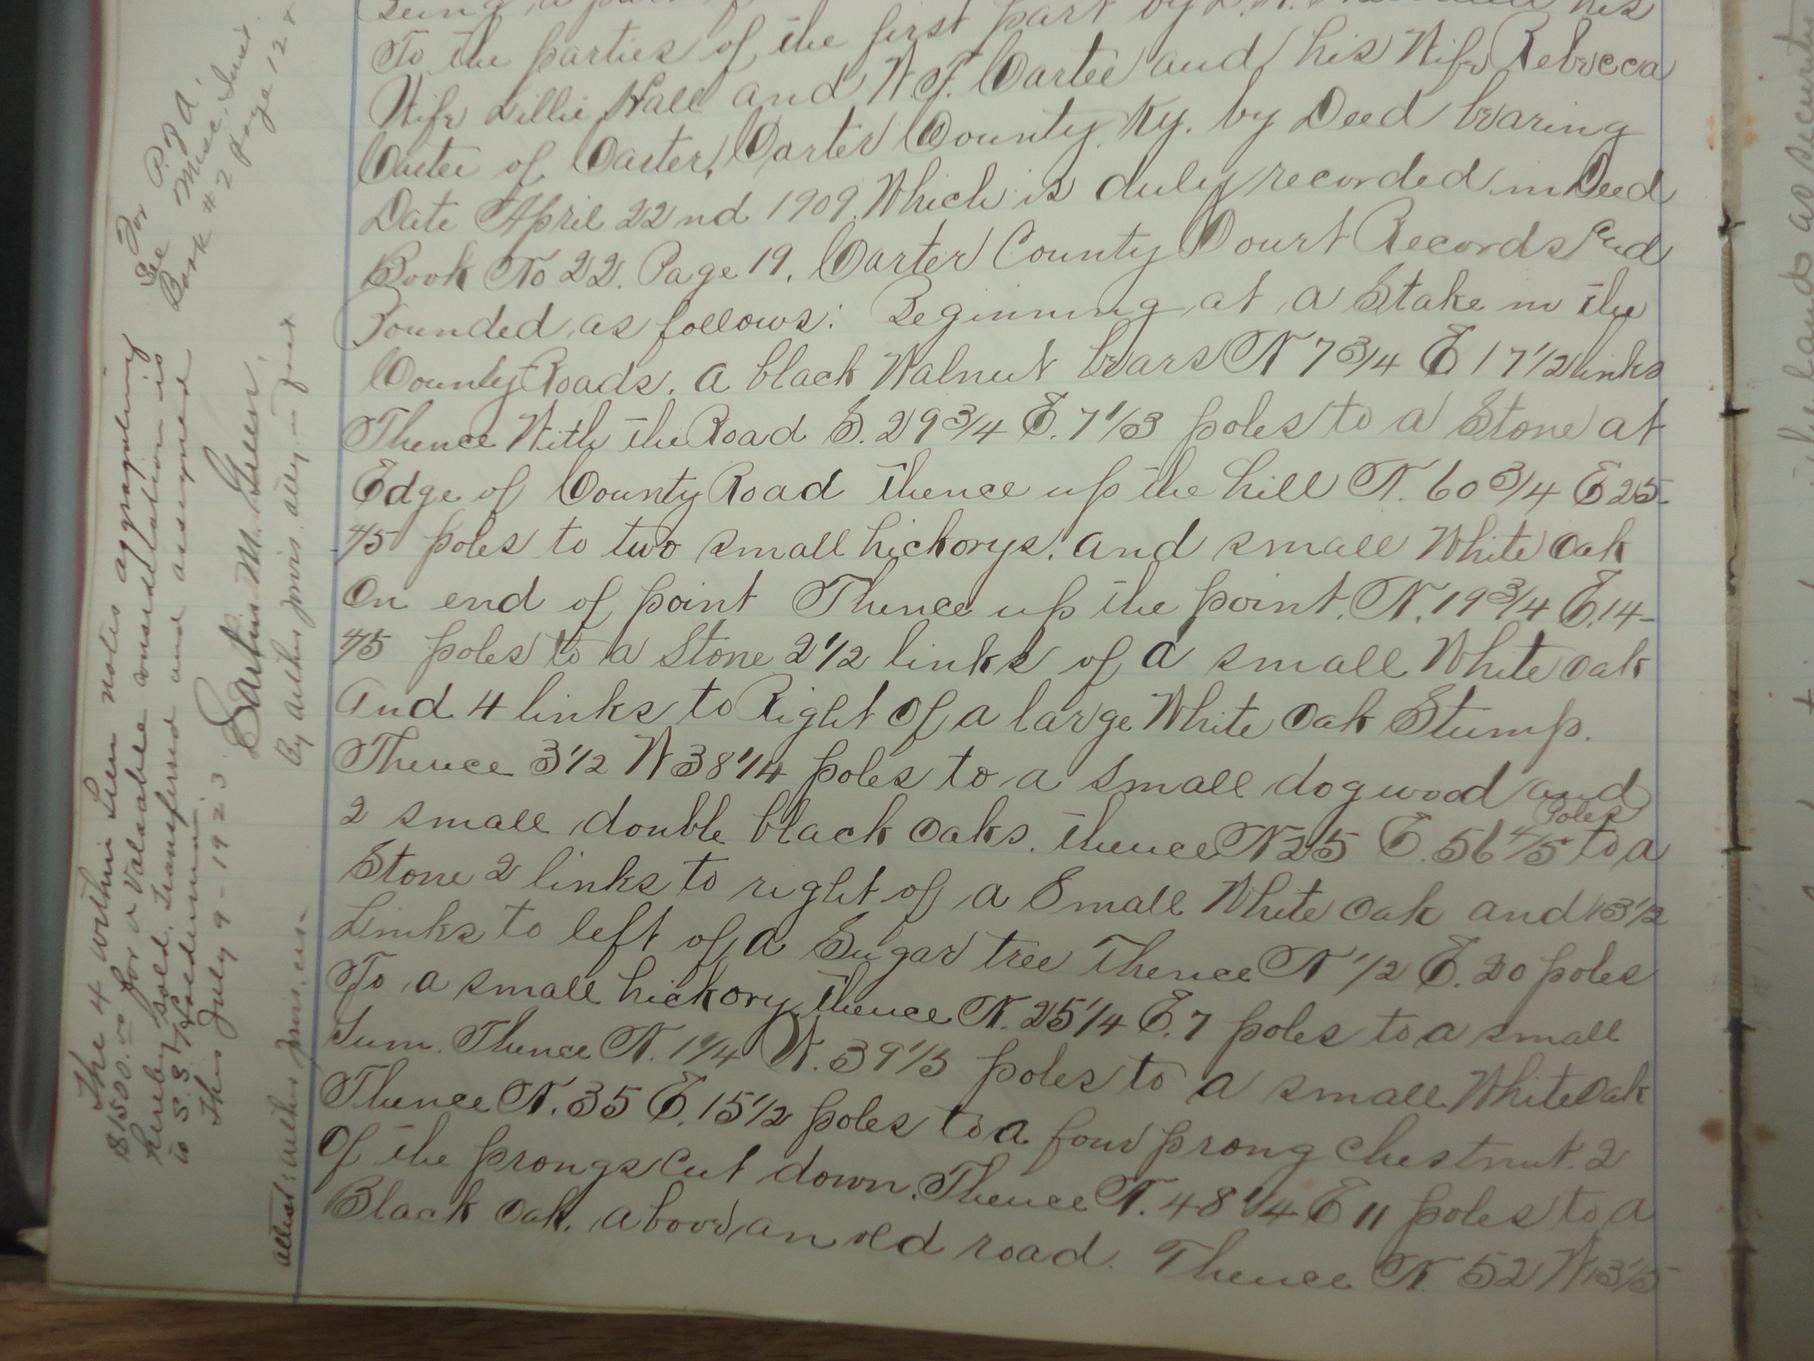 To the parties of the first part by
Wife Lillie Hall and W.J. Cartee and his Wife Rebecca
Cartee of Carter, Carter County, Ky. by Deed bearing
Date April 22nd 1909 Which is duly recorded in Deed
Book No 22. Page 19. Carter County Court Records and
Bounded as follows: Beginning at a Stake in the
County Roads. a black Walnut bears N 7 3/4 E 17 1/2 links
Thence With the Road S. 29 3/4 E. 7 1/3 poles to a Stone at
Edge of County Road Thence up the hill N. 60 3/4 E 25-
4/5 poles to two small hickorys. and small White Oak
On end of point Thence up the point. N. 19 3/4 E. 14-
4/5 poles to a Stone 2 1/2 links of a small White Oak
And 4 links to Right of a large White Oak Stump.
Thence 3 1/2 W 38 1/4 poles to a small dogwood and
2 small double black oaks. Thence N 25 E. 56 4/5 Poles to a
Stone 2 links to right of a Small White Oak and 13 1/2
Links to left of a Sugar tree Thence N 1/2 E. 20 poles
To a small hickory, thence N. 25 1/4 E. 7 poles to a small
Gum. Thence N. 1 1/4 W. 39 1/3 poles to a small White Oak
Thence N. 35 E. 15 1/2 poles to a four prong Chestnut. 2
Of the prongs Cut down. Thence N. 48 1/4 E 11 poles to a
Black Oak. above an old road. Thence N 52 W 13 1/5
For P. of A.
See Misc.
Book #2 page 12
The 4 within Lien notes aggregating
$1500.00 for a Valuable consideration is
hereby sold, Transferred and assigned
to S.S.
This July 9-1923
M. Green.
By
attest: